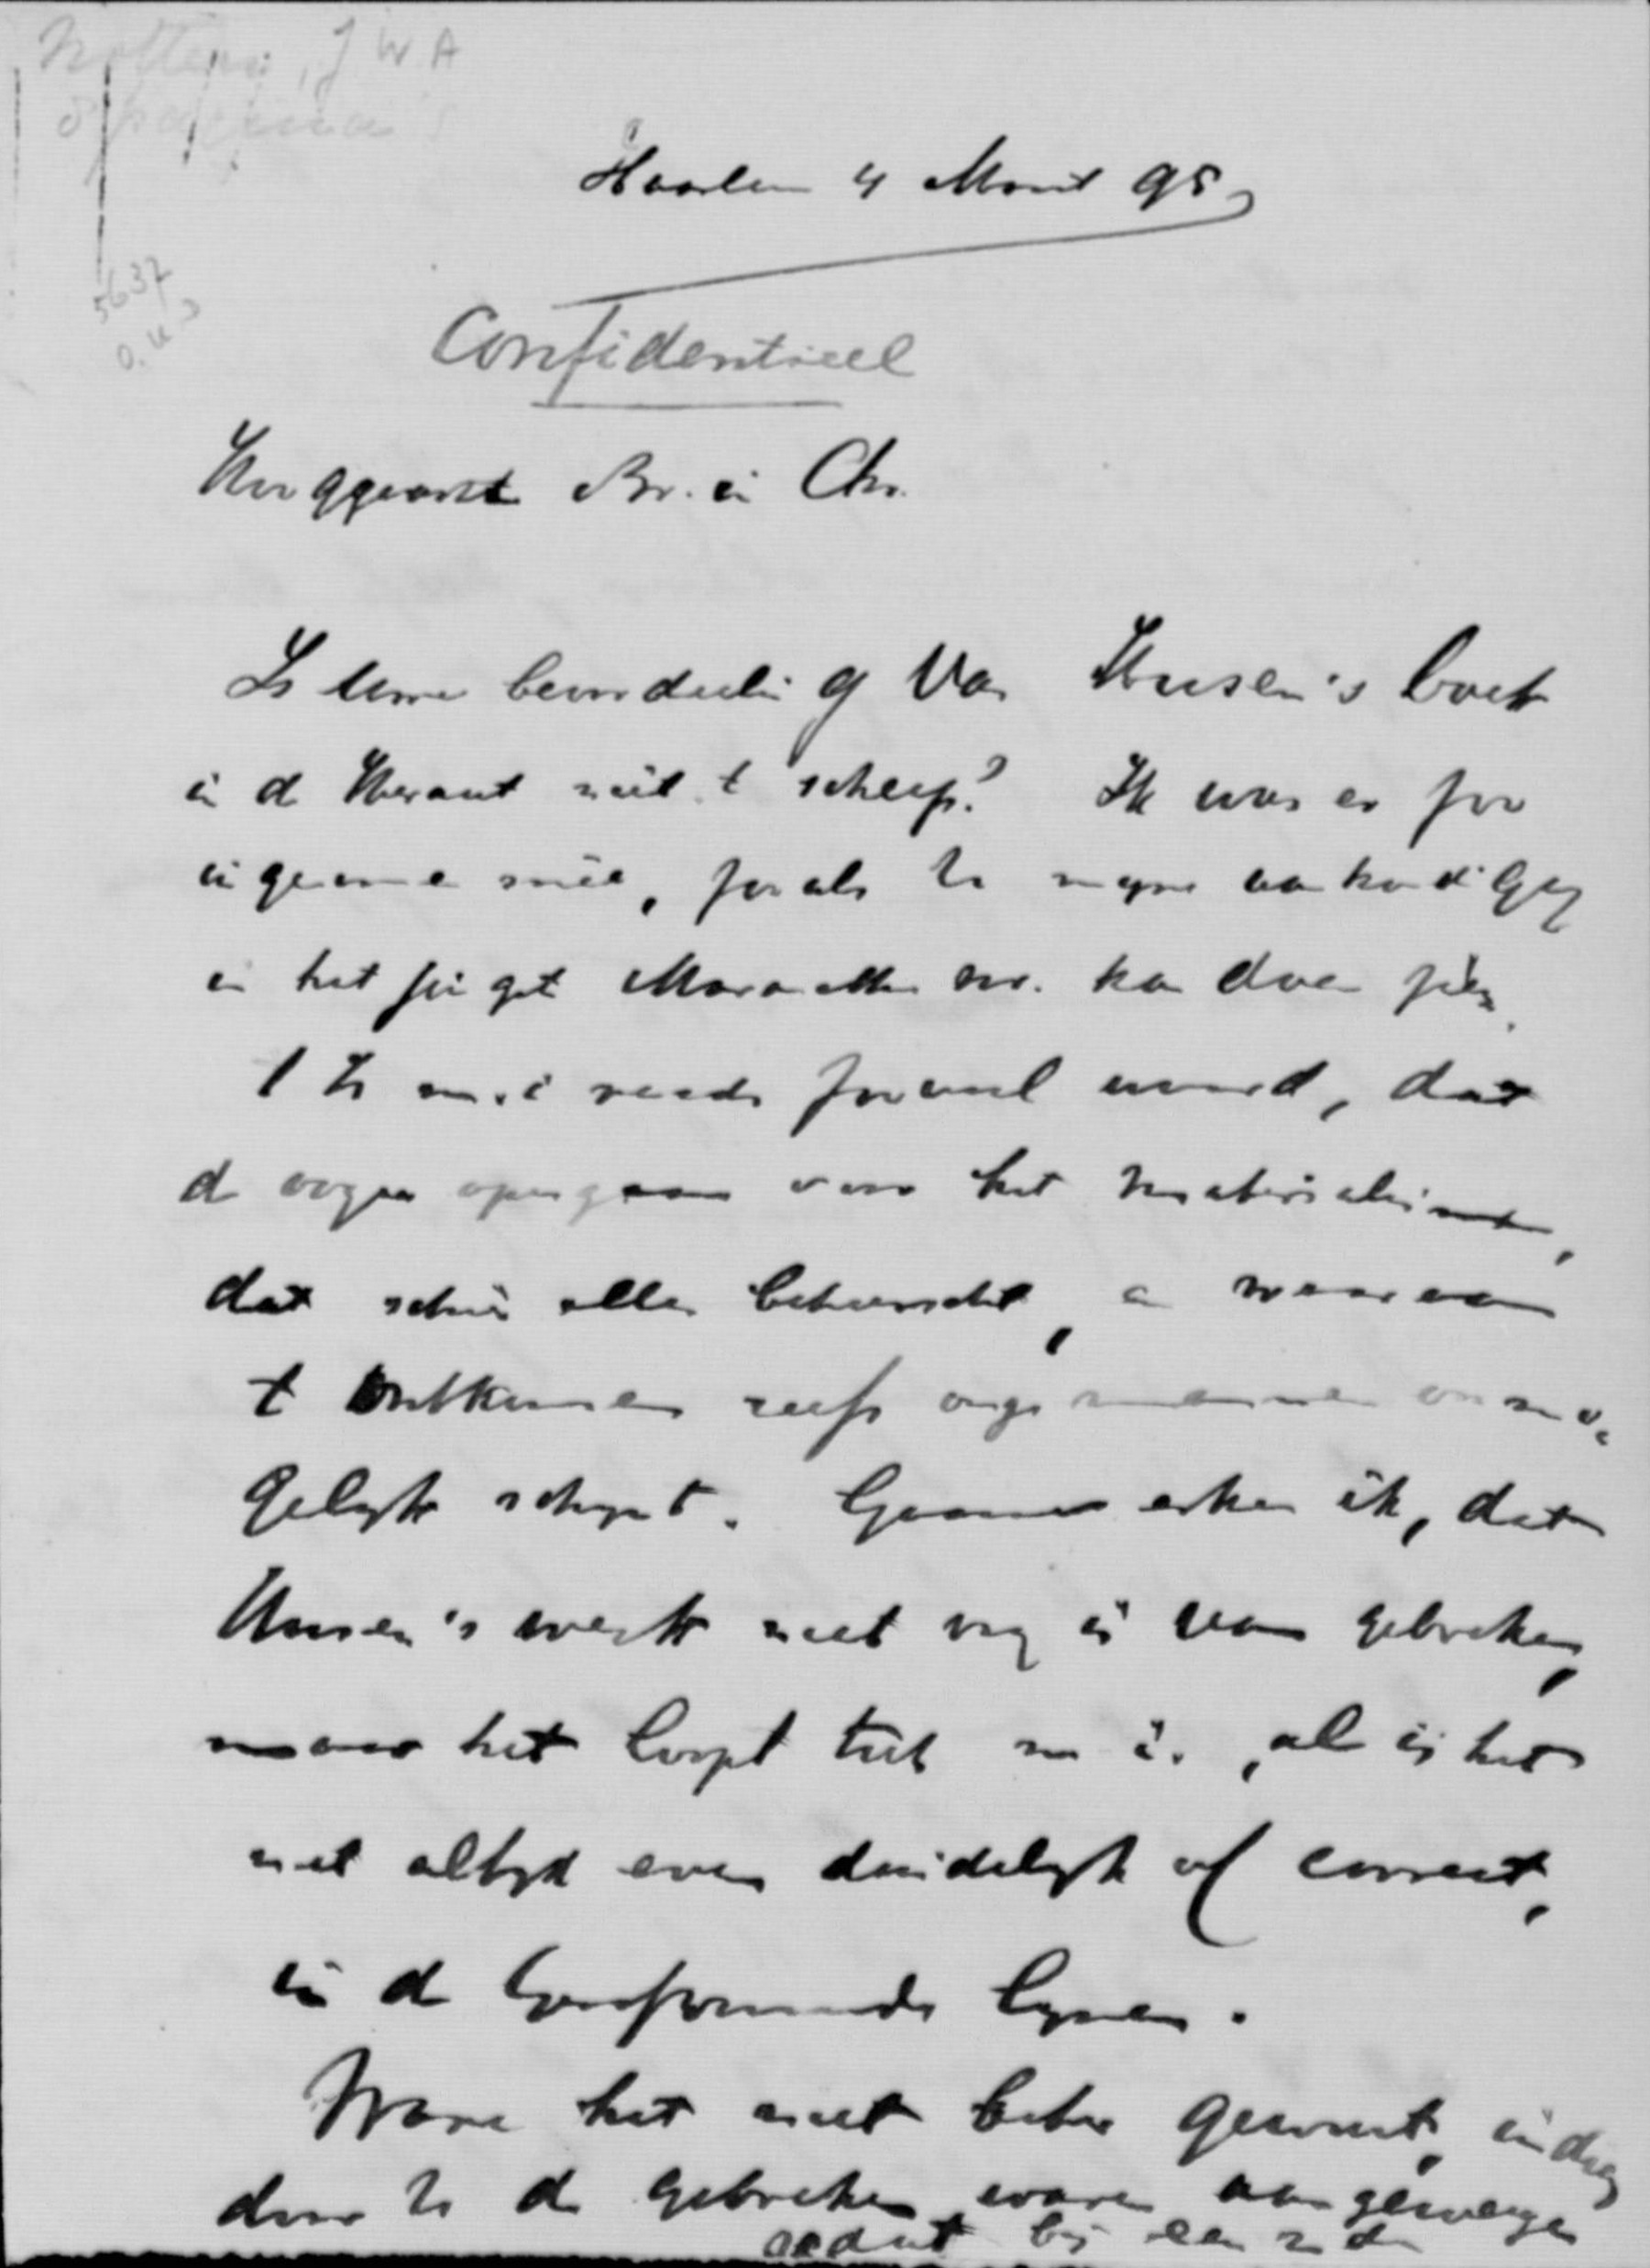 J W A
Haarlem 4 Maart 95
5637
Confidentieel
Hooggeacht Br. in Chr.
Is Uwe beoordeeling van Huisen's boek
in de Heraut niet te scherp? Ik was er zoo
ingenomen mêe, zooals U mijne aankondiging
in het pingst Maranatha nr. kan doen zien.
't Is mij reeds zooveel waard, dat
de oogen opengaan voor het materialisme,
dat schier alles beheerscht, en waaraan
te ontkomen zelfs onzen mannen onmo-
gelijk schijnt. Gaarne erken ik, dat
Huisen's werk niet vrij is van gebreken,
maar het loopt toch m. i., al is het
niet altijd even duidelijk of correct,
in de Gereformeerde lijnen.
Ware het niet beter geweest, indien
door U de gebreken waren aangewezen
bij een 2de